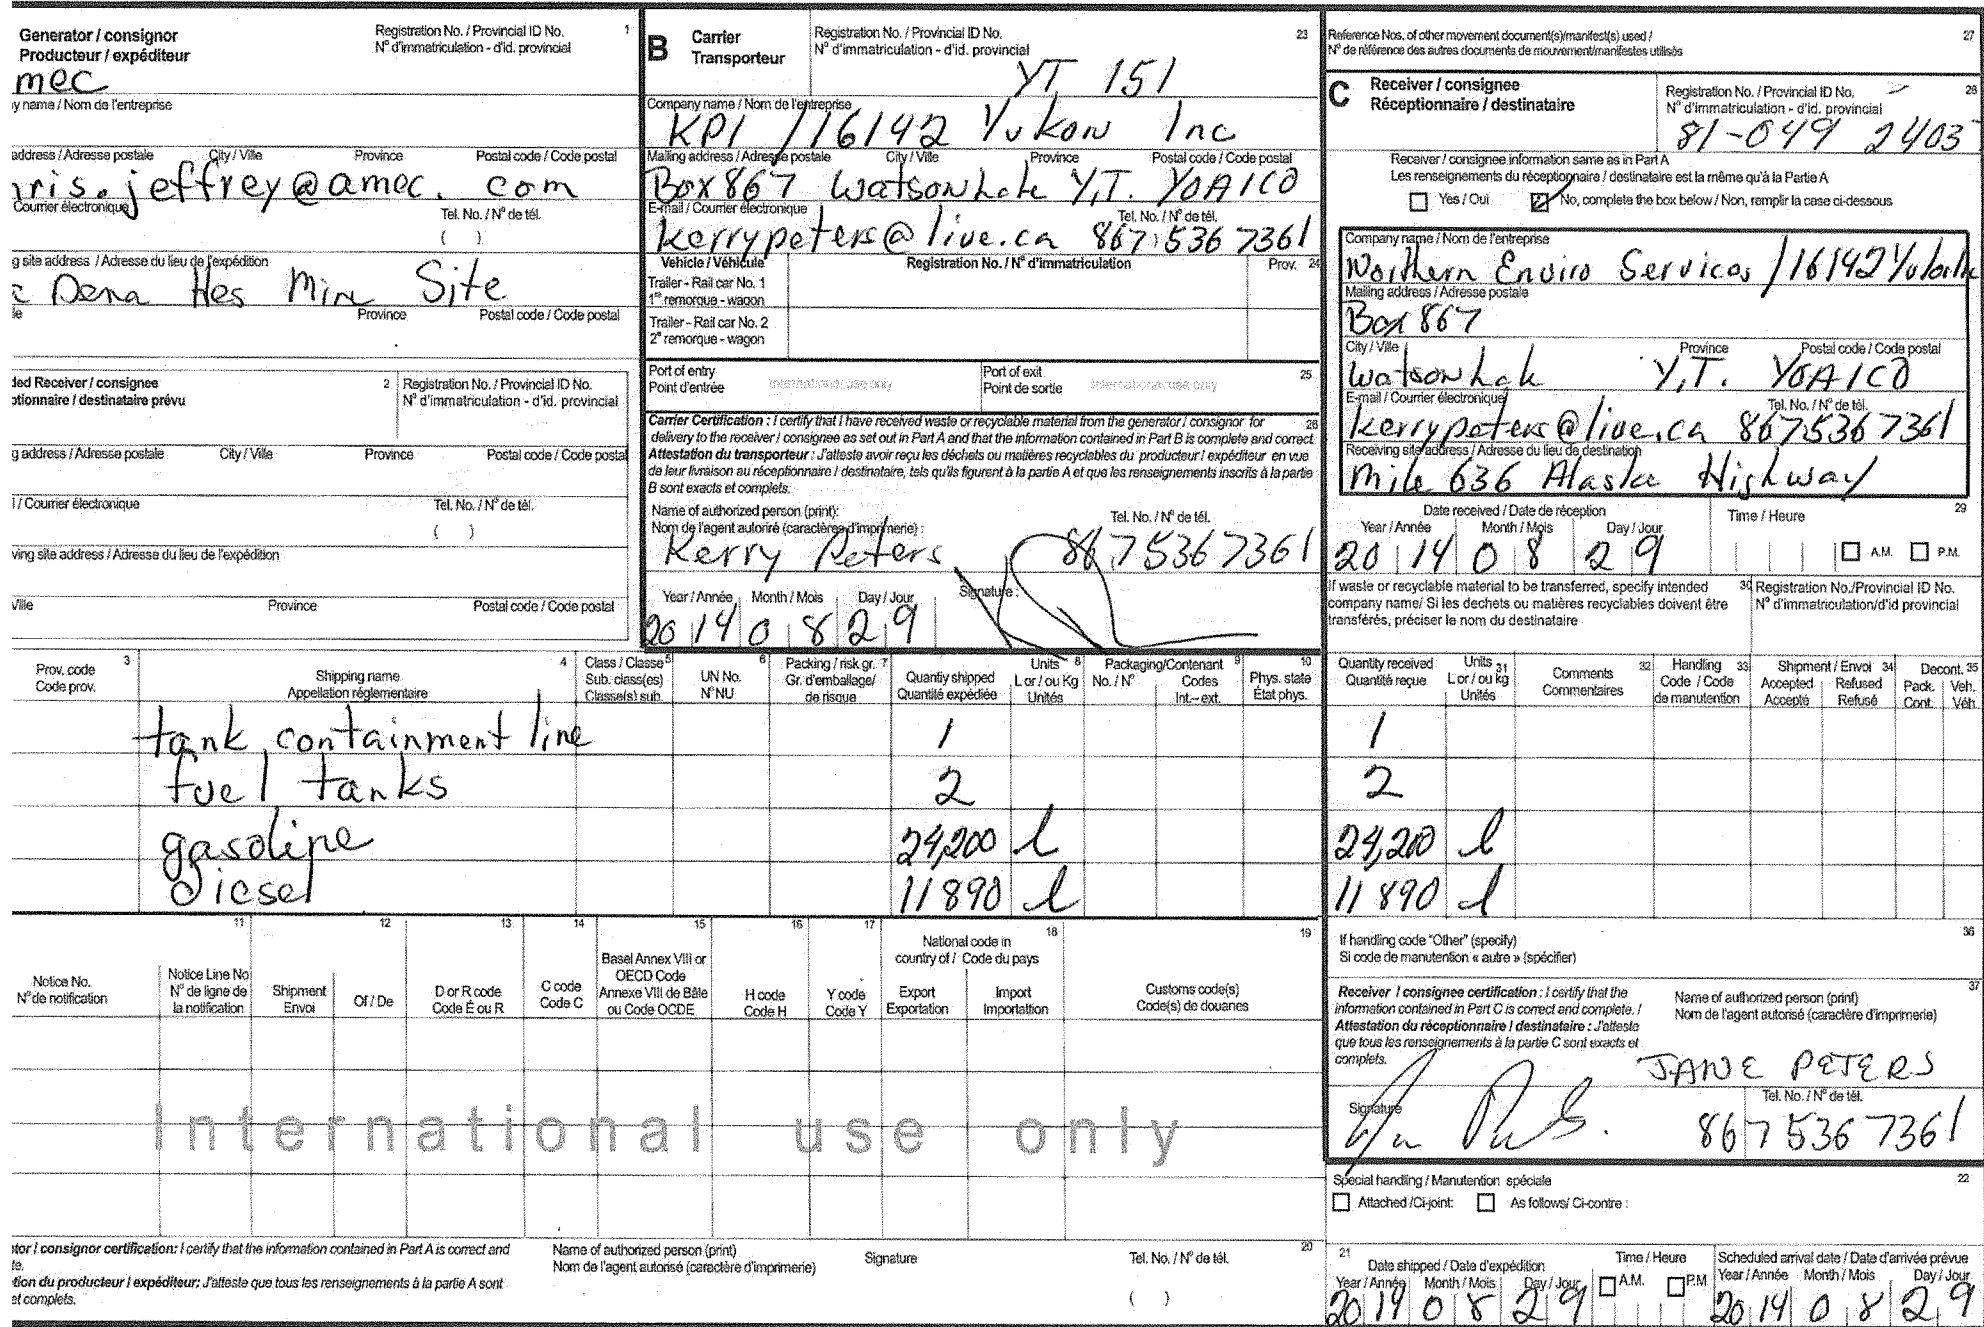 Generator / consignor
Producteur / expéditeur
Registration No. / Provincial ID No.
N° d'immatriculation - d'id. provincial
1
mec
y name / Nom de l'entreprise
address / Adresse postale City / Ville Province Postal code / Code postal
ris.jeffrey@amec.com
Courrier électronique
Tel. No. / N° de tél.
( )
g site address / Adresse du lieu de l'expédition
Dena Hes Mine Site
le Province Postal code / Code postal
ded Receiver / consignee
ptionnaire / destinataire prévu
2
Registration No. / Provincial ID No.
N° d'immatriculation - d'id. provincial
g address / Adresse postale City / Ville Province Postal code / Code postal
l / Courrier électronique
Tel. No. / N° de tél.
( )
ving site address / Adresse du lieu de l'expédition
Ville Province Postal code / Code postal
B Carrier
Transporteur
Registration No. / Provincial ID No.
N° d'immatriculation - d'id. provincial
23
YT 151
Company name / Nom de l'entreprise
KPI / 16142 Yukon Inc
Mailing address / Adresse postale City / Ville Province Postal code / Code postal
Box 867 Watson Lak Y,T. Y0A1C0
E-mail / Courrier électronique Tel. No. / N° de tél.
kerrypeters@live.ca 867 536 7361
Vehicle / Véhicule Registration No. / N° d'immatriculation Prov. 24
Trailer - Rail car No. 1
1re remorque - wagon
Trailer - Rail car No. 2
2e remorque - wagon
Port of entry
Point d'entrée
International use only
Port of exit
Point de sortie
International use only
25
Carrier Certification : I certify that I have received waste or recyclable material from the generator / consignor for 26
delivery to the receiver / consignee as set out in Part A and that the information contained in Part B is complete and correct.
Attestation du transporteur : J'atteste avoir reçu les déchets ou matières recyclables du producteur / expéditeur en vue
de leur livraison au réceptionnaire / destinataire, tels qu'ils figurent à la partie A et que les renseignements inscrits à la partie
B sont exacts et complets.
Name of authorized person (print):
Nom de l'agent autoriré (caractères d'imprimerie) :
Tel. No. / N° de tél.
Kerry Peters 867 536 7361
Year / Année Month / Mois Day / Jour Signature :
2014 08 29
Reference Nos. of other movement document(s)/manifest(s) used /
N° de référence des autres documents de mouvement/manifestes utilisés
27
C Receiver / consignee
Réceptionnaire / destinataire
Registration No. / Provincial ID No.
N° d'immatriculation - d'id. provincial
28
81-049 2403
Receiver / consignee information same as in Part A
Les renseignements du réceptionnaire / destinataire est la même qu'à la Partie A
Yes / Oui No, complete the box below / Non, remplir la case ci-dessous
Company name / Nom de l'entreprise
Northern Enviro Services / 16142 Yukon
Mailing address / Adresse postale
Box 867
City / Ville Province Postal code / Code postal
Watson Lak Y,T. Y0A1C0
E-mail / Courrier électronique Tel. No. / N° de tél.
kerrypeters@live.ca 867 536 7361
Receiving site address / Adresse du lieu de destination
Mile 636 Alaska Highway
Date received / Date de réception Time / Heure 29
Year / Année Month / Mois Day / Jour
2014 08 29 A.M. P.M.
If waste or recyclable material to be transferred, specify intended
company name/ Si les dechets ou matières recyclables doivent être
transférés, préciser le nom du destinataire
30
Registration No./Provincial ID No.
N° d'immatriculation/d'id provincial
Prov. code
Code prov.
3
Shipping name
Appellation réglementaire
4
Class / Classe
Sub. class(es)
Classe(s) sub.
5
UN No.
N° NU
6
Packing / risk gr.
Gr. d'emballage/
de risque
7
Quantiy shipped
Quantité expédiée
Units
L or / ou Kg
Unités
8
Packaging/Contenant
No. / N° Codes
Int.– ext.
9
Phys. state
État phys.
10
Quantity received
Quantité reçue
Units
L or / ou kg
Unités
31
Comments
Commentaires
32
Handling
Code / Code
de manutention
33
Shipment / Envoi 34
Accepted Refused
Accepté Refusé
Decont. 35
Pack. Veh.
Cont. Véh.
tank containment line 1 1
fuel tanks 2 2
gasoline 24,200 l 24,200 l
diesel 11890 l 11890 l
11 12 13 14 15 16 17 18 19
Notice No.
N° de notification
Notice Line No
N° de ligne de
la notification
Shipment
Envoi
Of / De
D or R code
Code É ou R
C code
Code C
Basel Annex VIII or
OECD Code
Annexe VIII de Bâle
ou Code OCDE
H code
Code H
Y code
Code Y
National code in
country of / Code du pays
Export Import
Exportation Importattion
Customs code(s)
Code(s) de douanes
International use only
If handling code "Other" (specify)
Si code de manutention « autre » (spécifier)
36
Receiver / consignee certification : I certify that the
information contained in Part C is correct and complete. /
Attestation du réceptionnaire / destinataire : J'atteste
que tous les renseignements à la partie C sont exacts et
complets.
Name of authorized person (print)
Nom de l'agent autorisé (caractère d'imprimerie)
37
JANE PETERS
Signature
Tel. No. / N° de tél.
867 536 7361
Special handling / Manutention spéciale 22
Attached /Ci-joint: As follows/ Ci-contre :
tor / consignor certification: I certify that the information contained in Part A is correct and
te.
tion du producteur / expéditeur: J'atteste que tous les renseignements à la partie A sont
et complets.
Name of authorized person (print)
Nom de l'agent autorisé (caractère d'imprimerie)
Signature
Tel. No. / N° de tél.
20
( )
21 Date shipped / Date d'expédition Time / Heure
Year / Année Month / Mois Day / Jour A.M. P.M
2014 08 29
Scheduled arrival date / Date d'arrivée prévue
Year / Année Month / Mois Day / Jour
2014 08 29